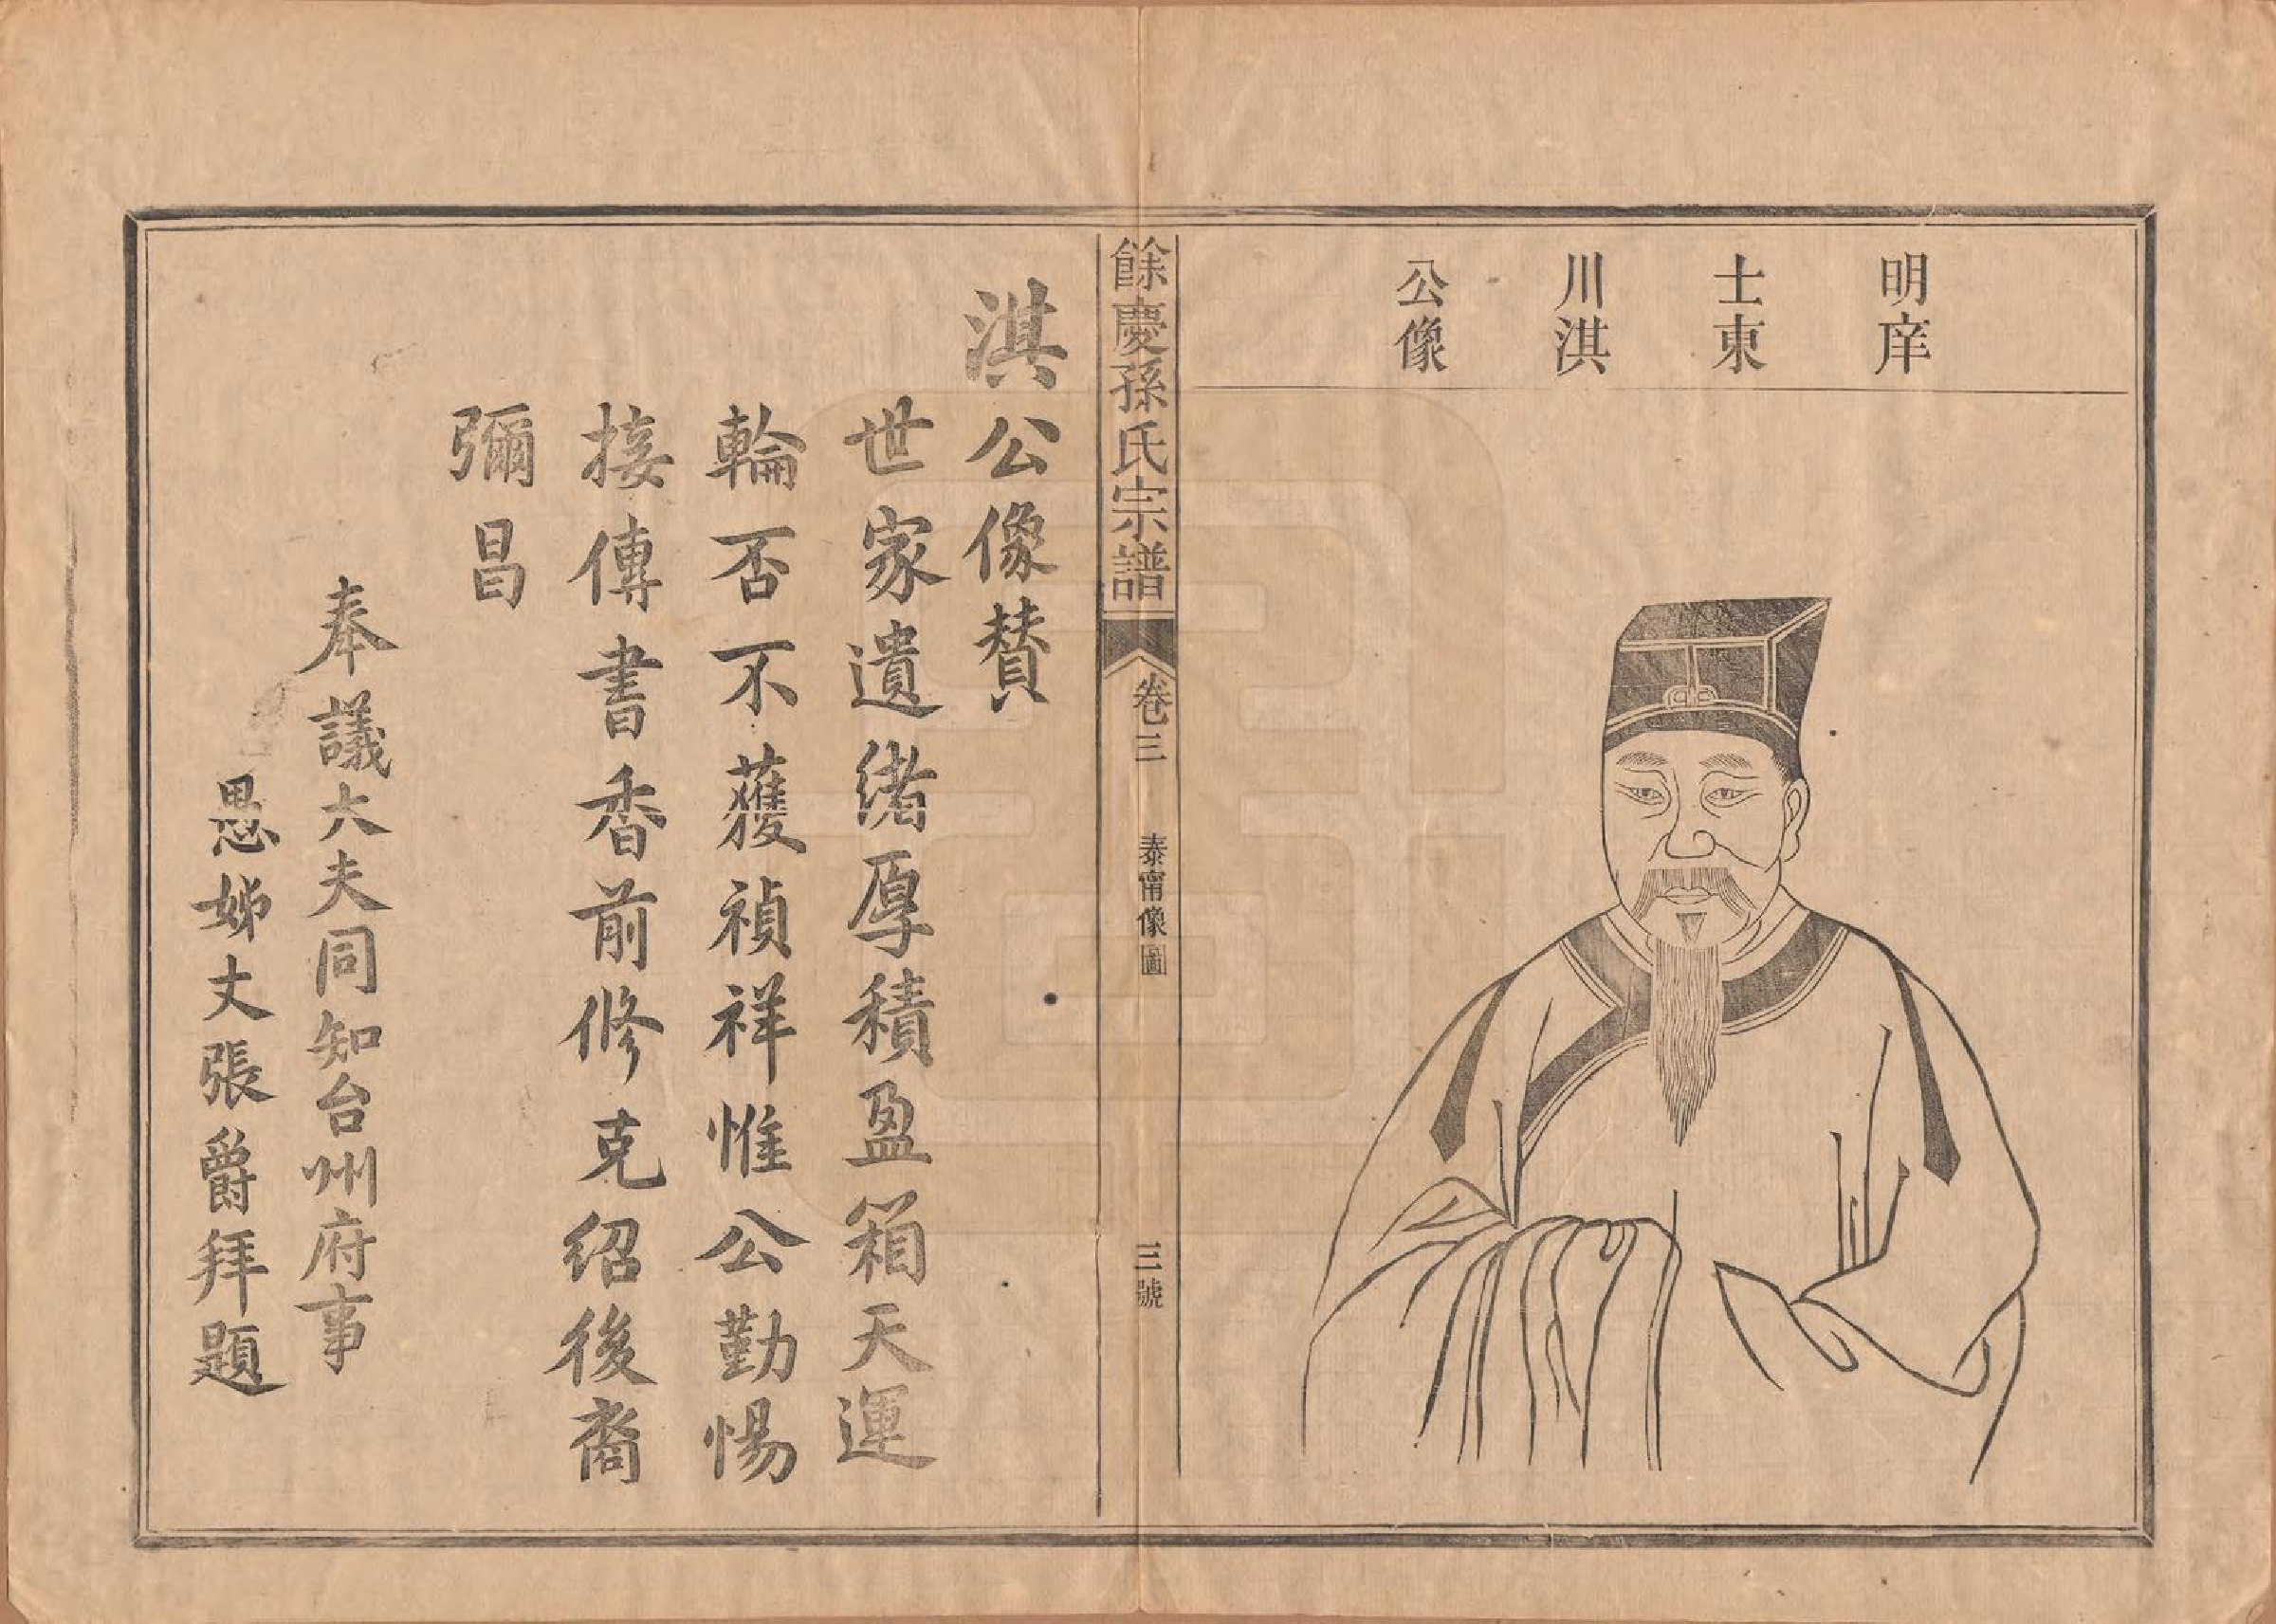 明庠
士東
川淇
公像
餘慶孫氏宗譜
卷三
泰甯像圖
三號
淇公像賛
世家遺緒厚積盈箱天運
輪否不獲禎祥惟公勤惕
接傳書香前修克紹後裔
彌昌
奉議大夫同知台州府事
愚姊丈張爵拜題